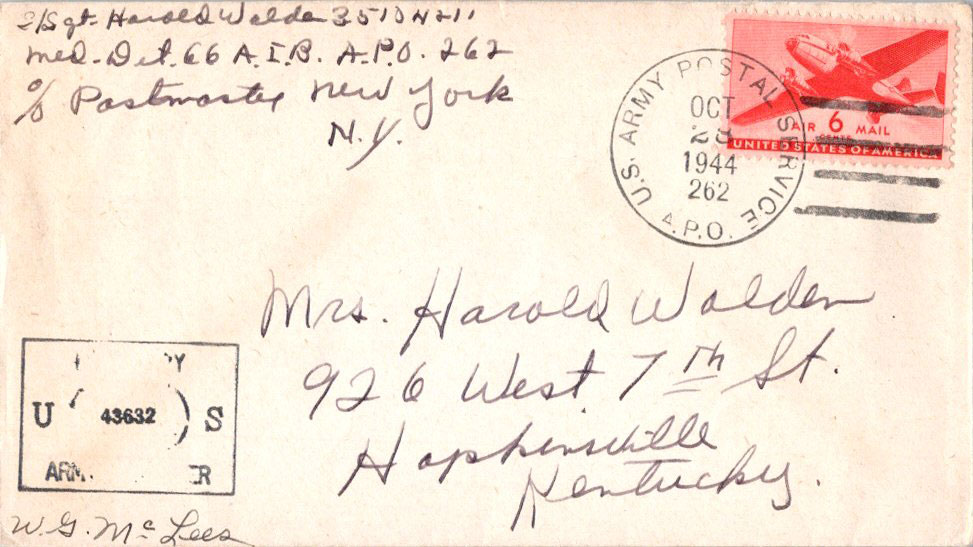 S/Sgt. Harold Walden 35104211
Med. Det. 66 A.I.B. A.P.O. 262
c/o Postmaster New York
N.Y.
U.S. ARMY POSTAL SERVICE
OCT
28
1944
262
A.P.O.
AIR 6 MAIL
CENTS
UNITED STATES OF AMERICA
Mrs. Harold Walden
926 West 7th St.
Hopkinsville
Kentucky.
U 43632 S
W. G. McLees